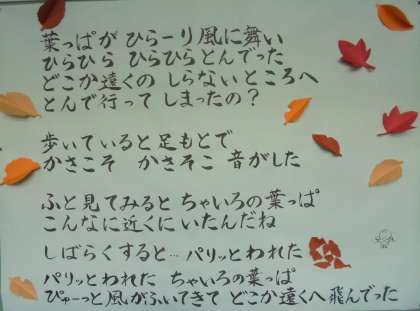 葉っぱが ひらーり風に舞い
ひらひら ひらひらとんでった
どこか遠くの しらないところへ
とんで行って しまったの？
歩いていると足もとで
かさこそ かさそこ 音がした
ふと見てみると ちゃいろの葉っぱ
こんなに近くに いたんだね
しばらくすると… パリッとわれた
パリッとわれた ちゃいろの葉っぱ
ぴゅーっと風がふいてきて どこか遠くへ飛んでった